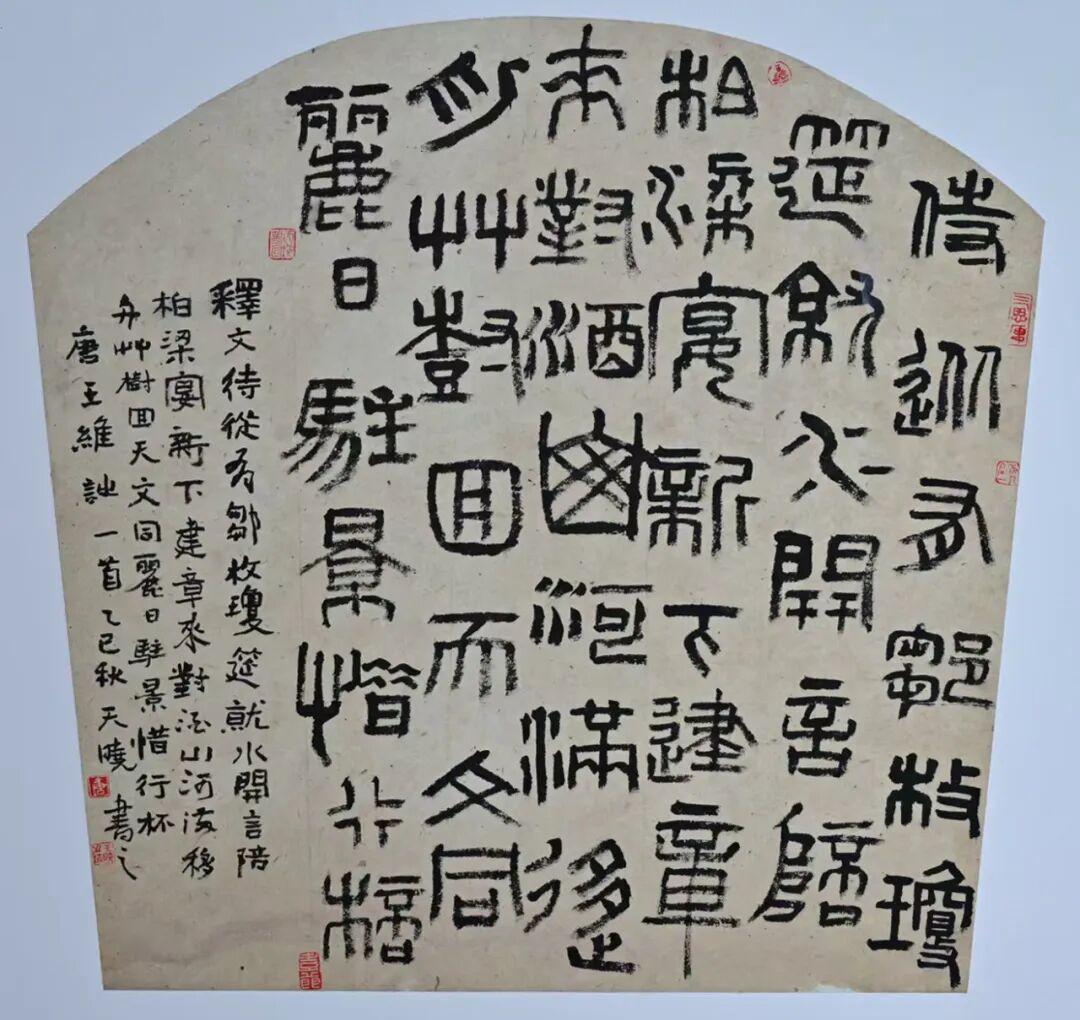 侍從有鄒枚瓊
筵就水開言陪
柏梁宴新下建章
來對酒山河滿移
舟艸樹回而文同
麗日駐景惜行杯
釋文待從有鄒枚瓊筵就水開言陪
柏梁宴新下建章來對酒山河滿移
舟艸樹回天文同麗日駐景惜行杯
唐王維詩一首乙巳秋天曉書之